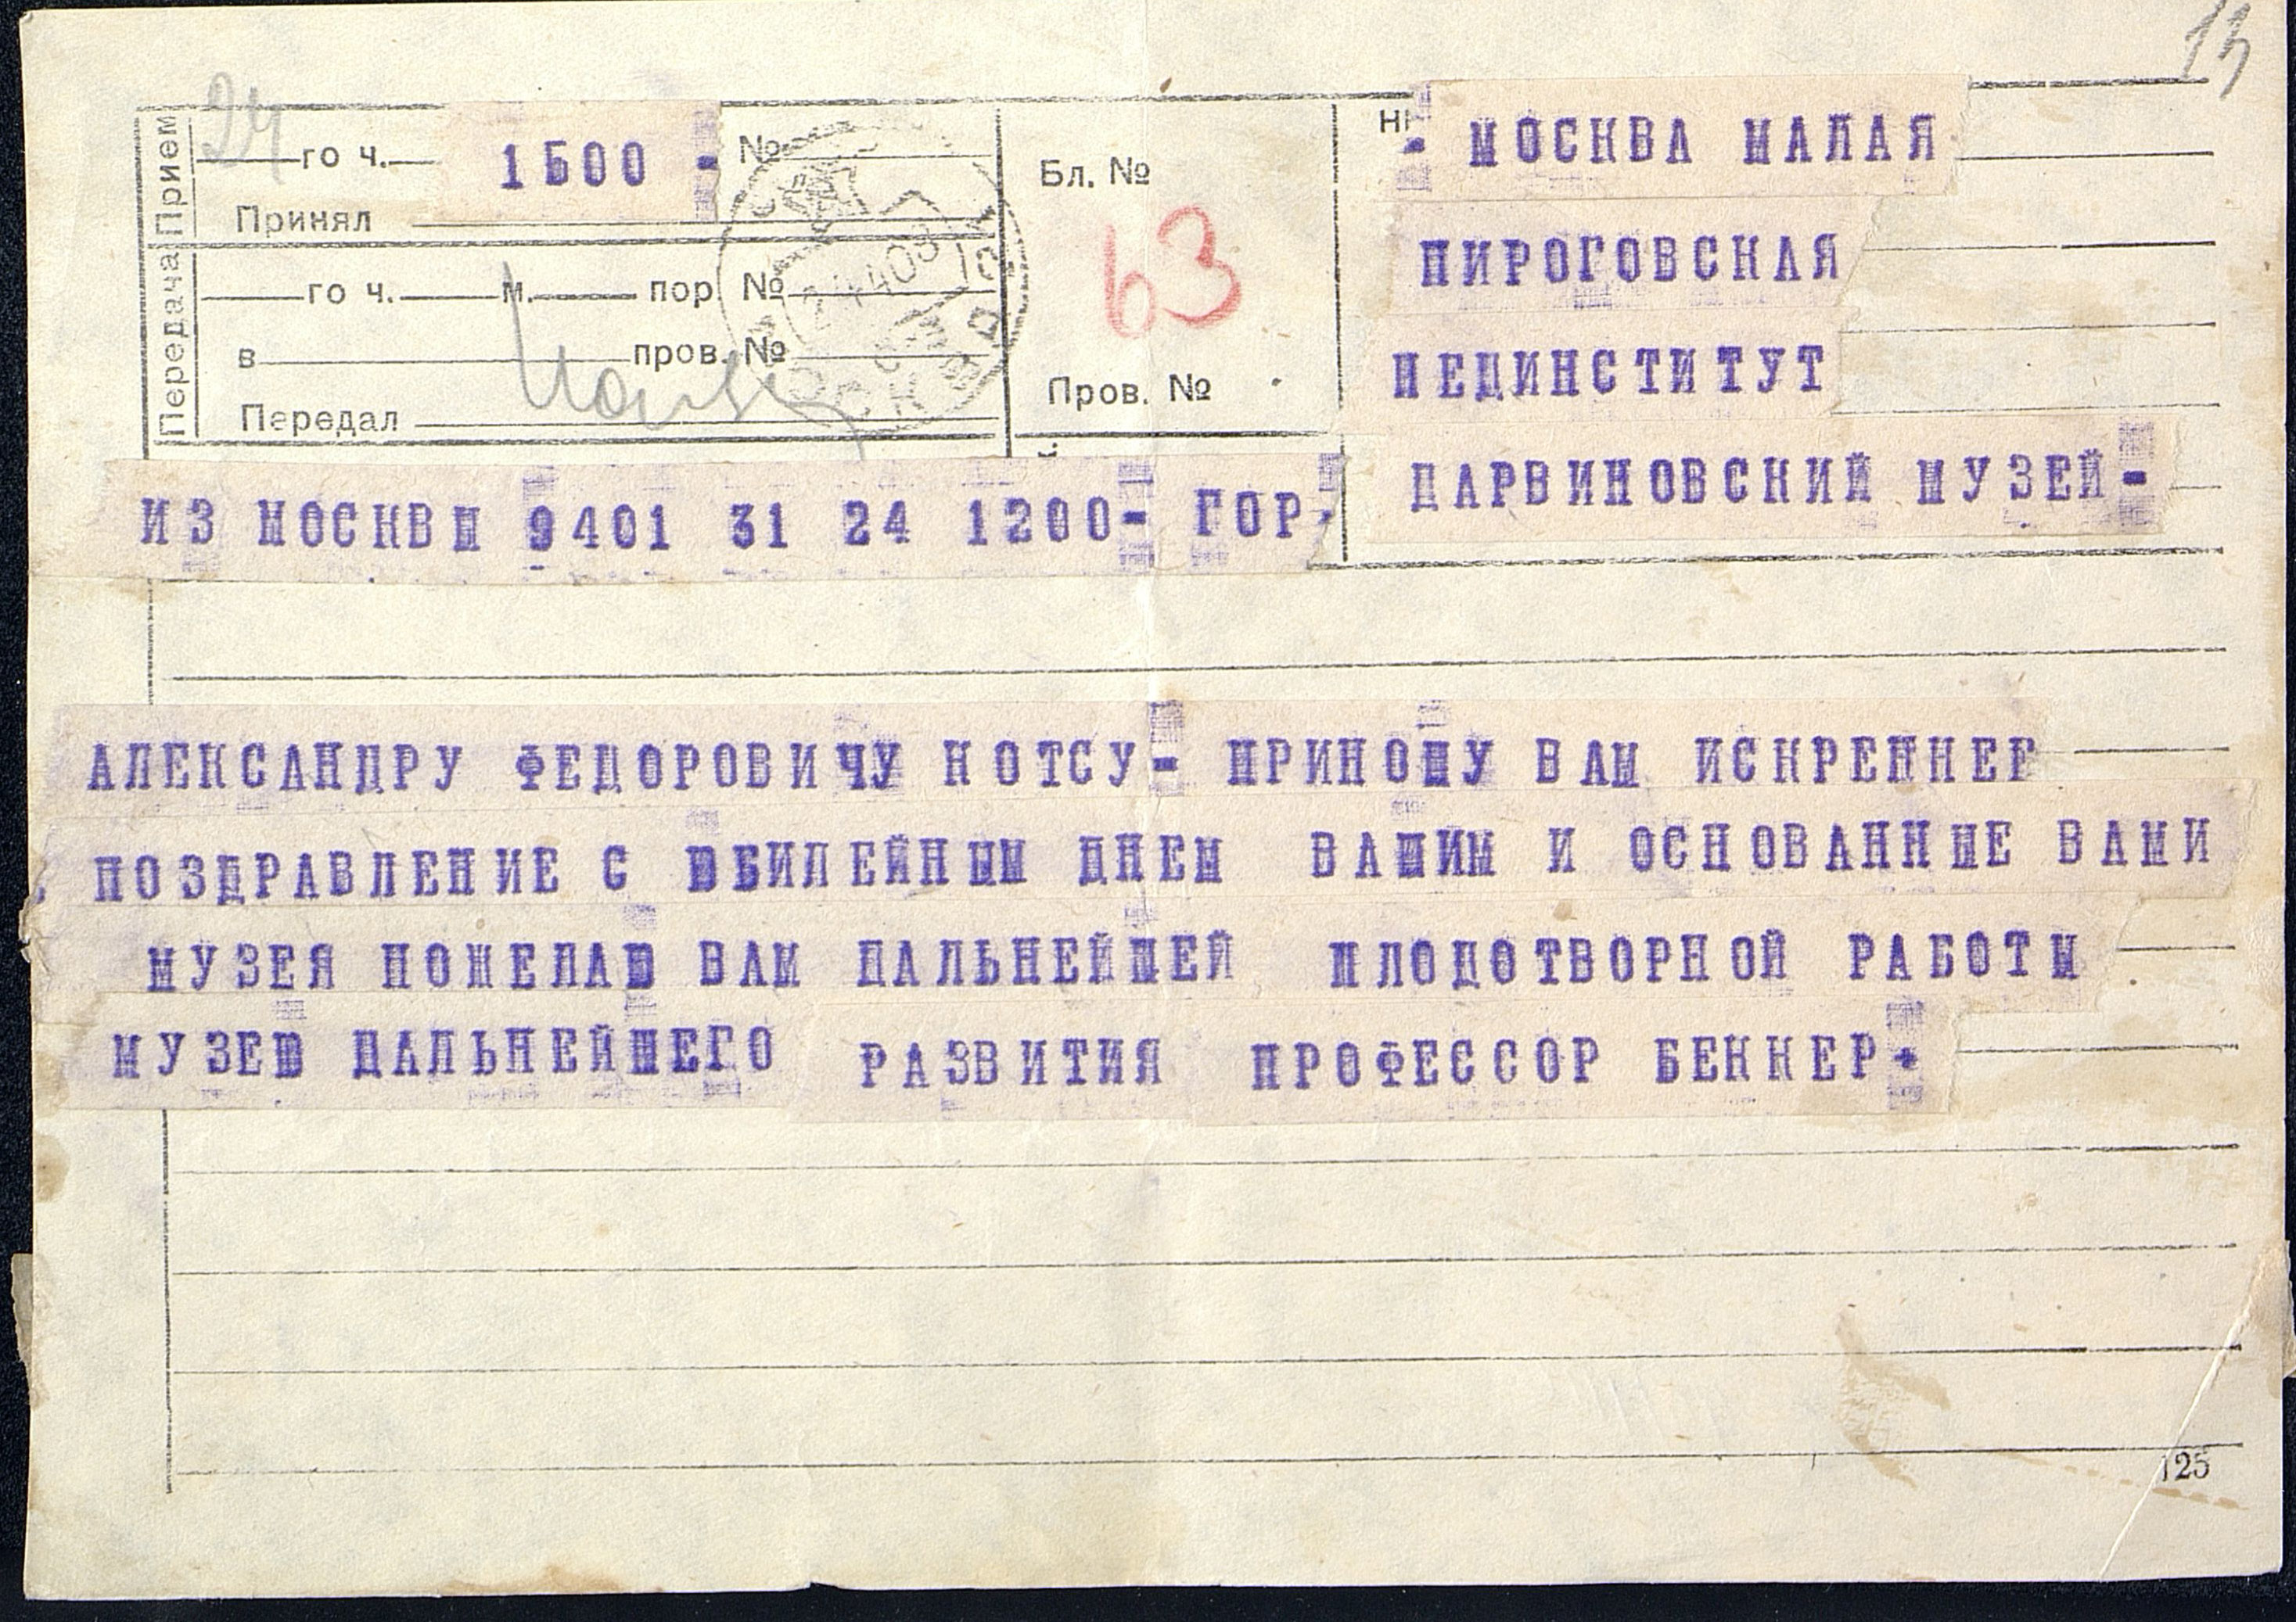 15
24
Прием
го ч. 1500 - №
Принял
Передача
го ч. м. пор. №
в пров. №
Передал
Бл. №
63
Пров. №
- МОСКВА МАЛАЯ
ПИРОГОВСКАЯ
ПЕДИНСТИТУТ
ДАРВИНОВСКИЙ МУЗЕЙ-
ИЗ МОСКВЫ 9401 31 24 1200- ГОР,
АЛЕКСАНДРУ ФЕДОРОВИЧУ КОТСУ- ПРИНОШУ ВАМ ИСКРЕННЕЕ
ПОЗДРАВЛЕНИЕ С ЮБИЛЕЙНЫМ ДНЕМ ВАШИМ И ОСНОВАННЫЕ ВАМИ
МУЗЕЯ ПОЖЕЛАЮ ВАМ ДАЛЬНЕЙШЕЙ ПЛОДОТВОРНОЙ РАБОТЫ
МУЗЕЮ ДАЛЬНЕЙШЕГО РАЗВИТИЯ ПРОФЕССОР БЕККЕР+
125